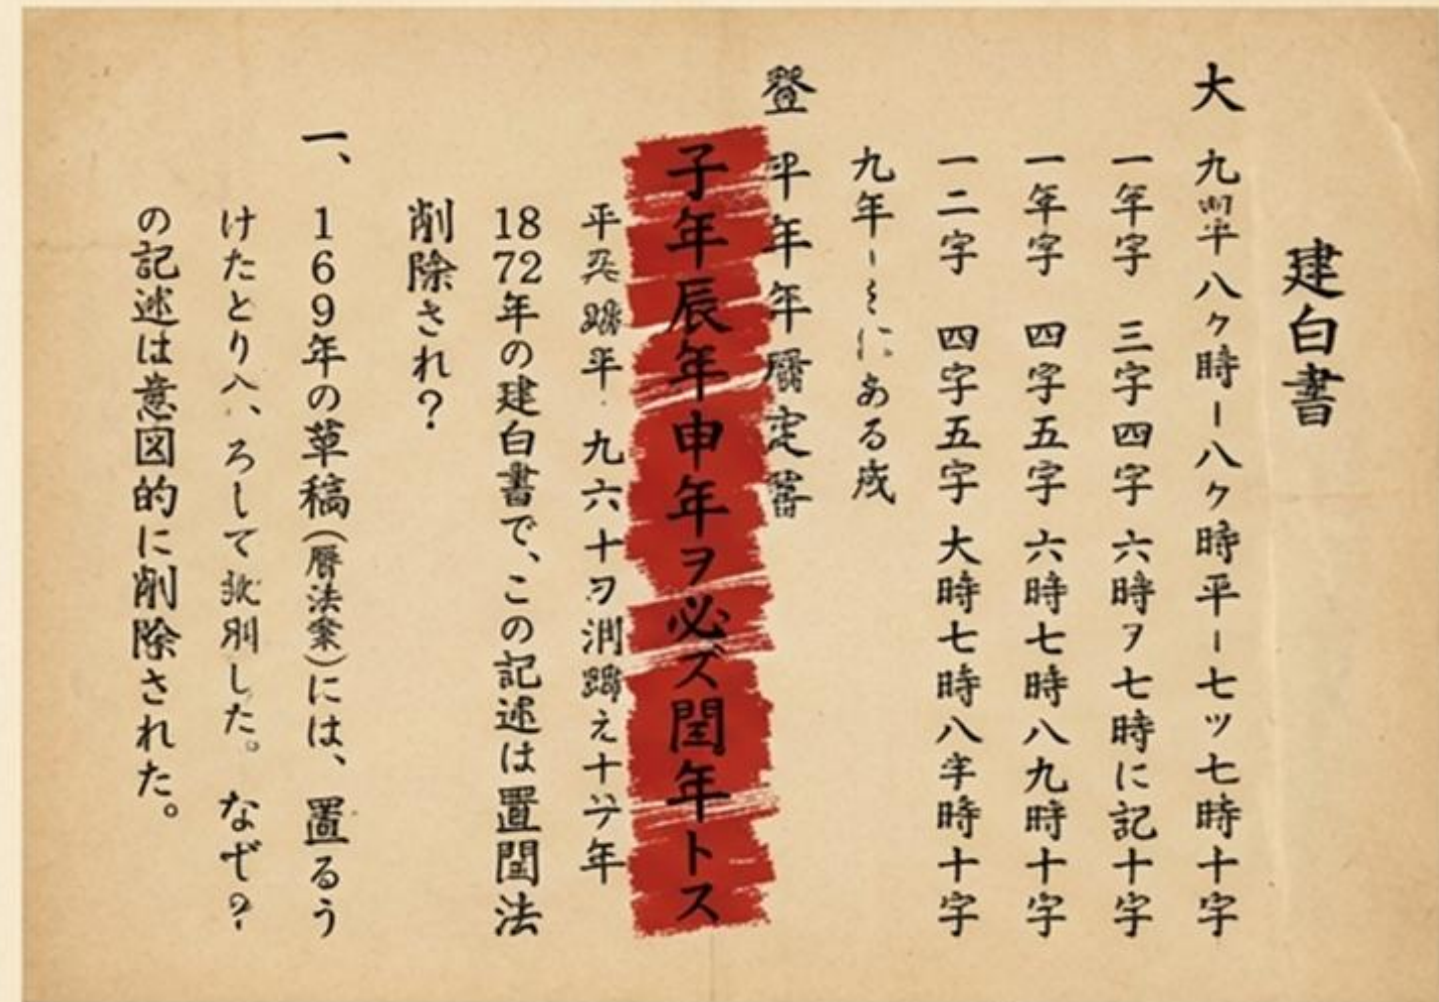 建白書
大 九 年 八ヶ時ー八ヶ時平ー七ッ七時十字
一年字 三字四字 六時ヲ七時に記十字
一年字 四字五字 六時七時八九時十字
一二字 四字五字 大時七時八字時十字
九年 にある歳
平年年暦定
子年辰年申年ヲ必ズ閏年トス
平 平 九六十ヲ え十 年
1872年の建白書で、この記述は置閏法
削除され?
一、 1869年の草稿(暦法案)には、置るう
けたとり八、ろして 別した。なぜ?
の記述は意図的に削除された。